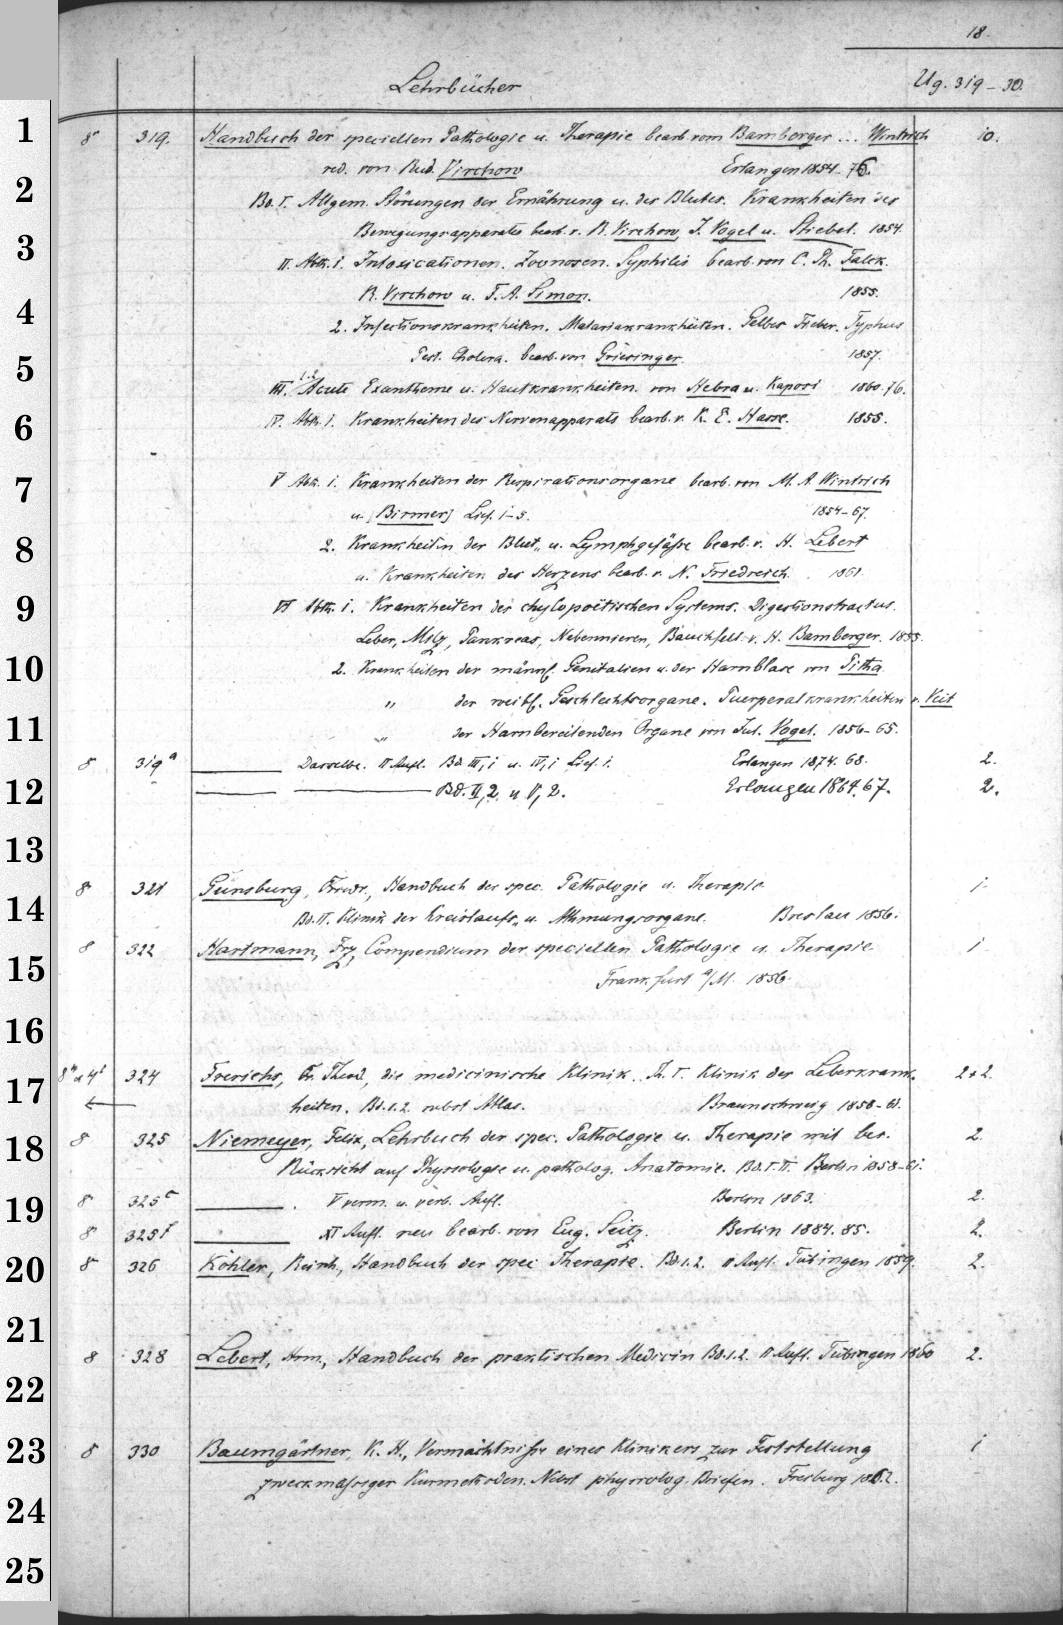 18.
Lehrbücher Ug. 319-30.
1
8° 319. Handbuch der speciellen Pathologie u. Therapie bearb. vom Bamberger ... Wintrich 10.
red. von Rud. Virchow Erlangen 1854-76.
2
Bd. I. Allgem. Störungen der Ernährung u. des Blutes. Krankheiten des
3
Bewegungsapparates bearb. v. R. Virchow, J. Vogel u. Stiebel. 1854.
II. Abth. 1. Intoxicationen. Zoonosen. Syphilis bearb. von C. Ph. Falck.
4
R. Virchow u. F. A. Simon. 1855.
2. Infectionskrankheiten. Malariakrankheiten. Gelbes Fieber. Typhus
5
Pest. Cholera. bearb. von Griesinger. 1857.
III. 1.2. Acute Exantheme u. Hautkrankheiten. von Hebra u. Kaposi 1860-76.
6
IV. Abth. 1. Krankheiten des Nervenapparats bearb. v. K. E. Hasse. 1855.
7
V Abth. 1. Krankheiten der Respirationsorgane bearb. von M. A. Wintrich
u. [Birmer] Lief. 1-5. 1854-67.
8
2. Krankheiten der Blut- u. Lymphgefässe bearb. v. H. Lebert
u. Krankheiten des Herzens bearb. v. N. Friedreich. 1861.
9
VI Abth. 1. Krankheiten des chylopoëtischen Systems. Digestionstractus.
Leber, Milz, Pankreas, Nebennieren, Bauchfell v. H. Bamberger. 1855.
10
2. Krankheiten der männl. Genitalien u. der Harnblase von Pitha
" der weibl. Geschlechtsorgane. Puerperalkrankheiten v. Veit
11
" der Harnbereitenden Organe von Jul. Vogel. 1856-65.
8 319a ——— Dasselbe. II Aufl. Bd III,1 u. IV,1 Lief. 1. Erlangen 1874. 68. 2.
12
——— ——— Bd. II,2. u V,2. Erlangen 1864. 67. 2.
13
8 321 Günsburg, Frdr., Handbuch der spec. Pathologie u. Therapie. 1
14
Bd. II. Klinik der Kreislaufs- u. Athmungsorgane. Breslau 1856.
8 322 Hartmann, Frz, Compendium der speciellen Pathologie u. Therapie. 1
15
Frankfurt a/M. 1856.
16
8° u 4° 324 Frerichs, Fr. Theod., die medicinische Klinik. Th. I. Klinik der Leberkrank- 2+2.
17
heiten. Bd. 1.2. nebst Atlas. Braunschweig 1858-61.
8 325 Niemeyer, Felix, Lehrbuch der spec. Pathologie u. Therapie mit bes. 2.
18
Rücksicht auf Physiologie u. patholog. Anatomie. Bd. I. II. Berlin 1858-61.
8 325c ———. V verm. u. verb. Aufl. Berlin 1863. 2.
19
8 325f ——— XI Aufl. neu bearb. von Eug. Seitz. Berlin 1884. 85. 2.
8 326 Köhler, Reinh., Handbuch der spec Therapie. Bd. 1.2. II Aufl. Tübingen 1859. 2.
20
21
8 328 Lebert, Herm., Handbuch der praktischen Medicin Bd. 1.2. II Aufl. Tübingen 1860 2.
22
23
8 330 Baumgärtner, K. H., Vermächtnisse eines Klinikers zur Feststellung 1
zweckmässiger Kurmethoden. Nebst physiolog. Briefen. Freiburg 1862.
24
25